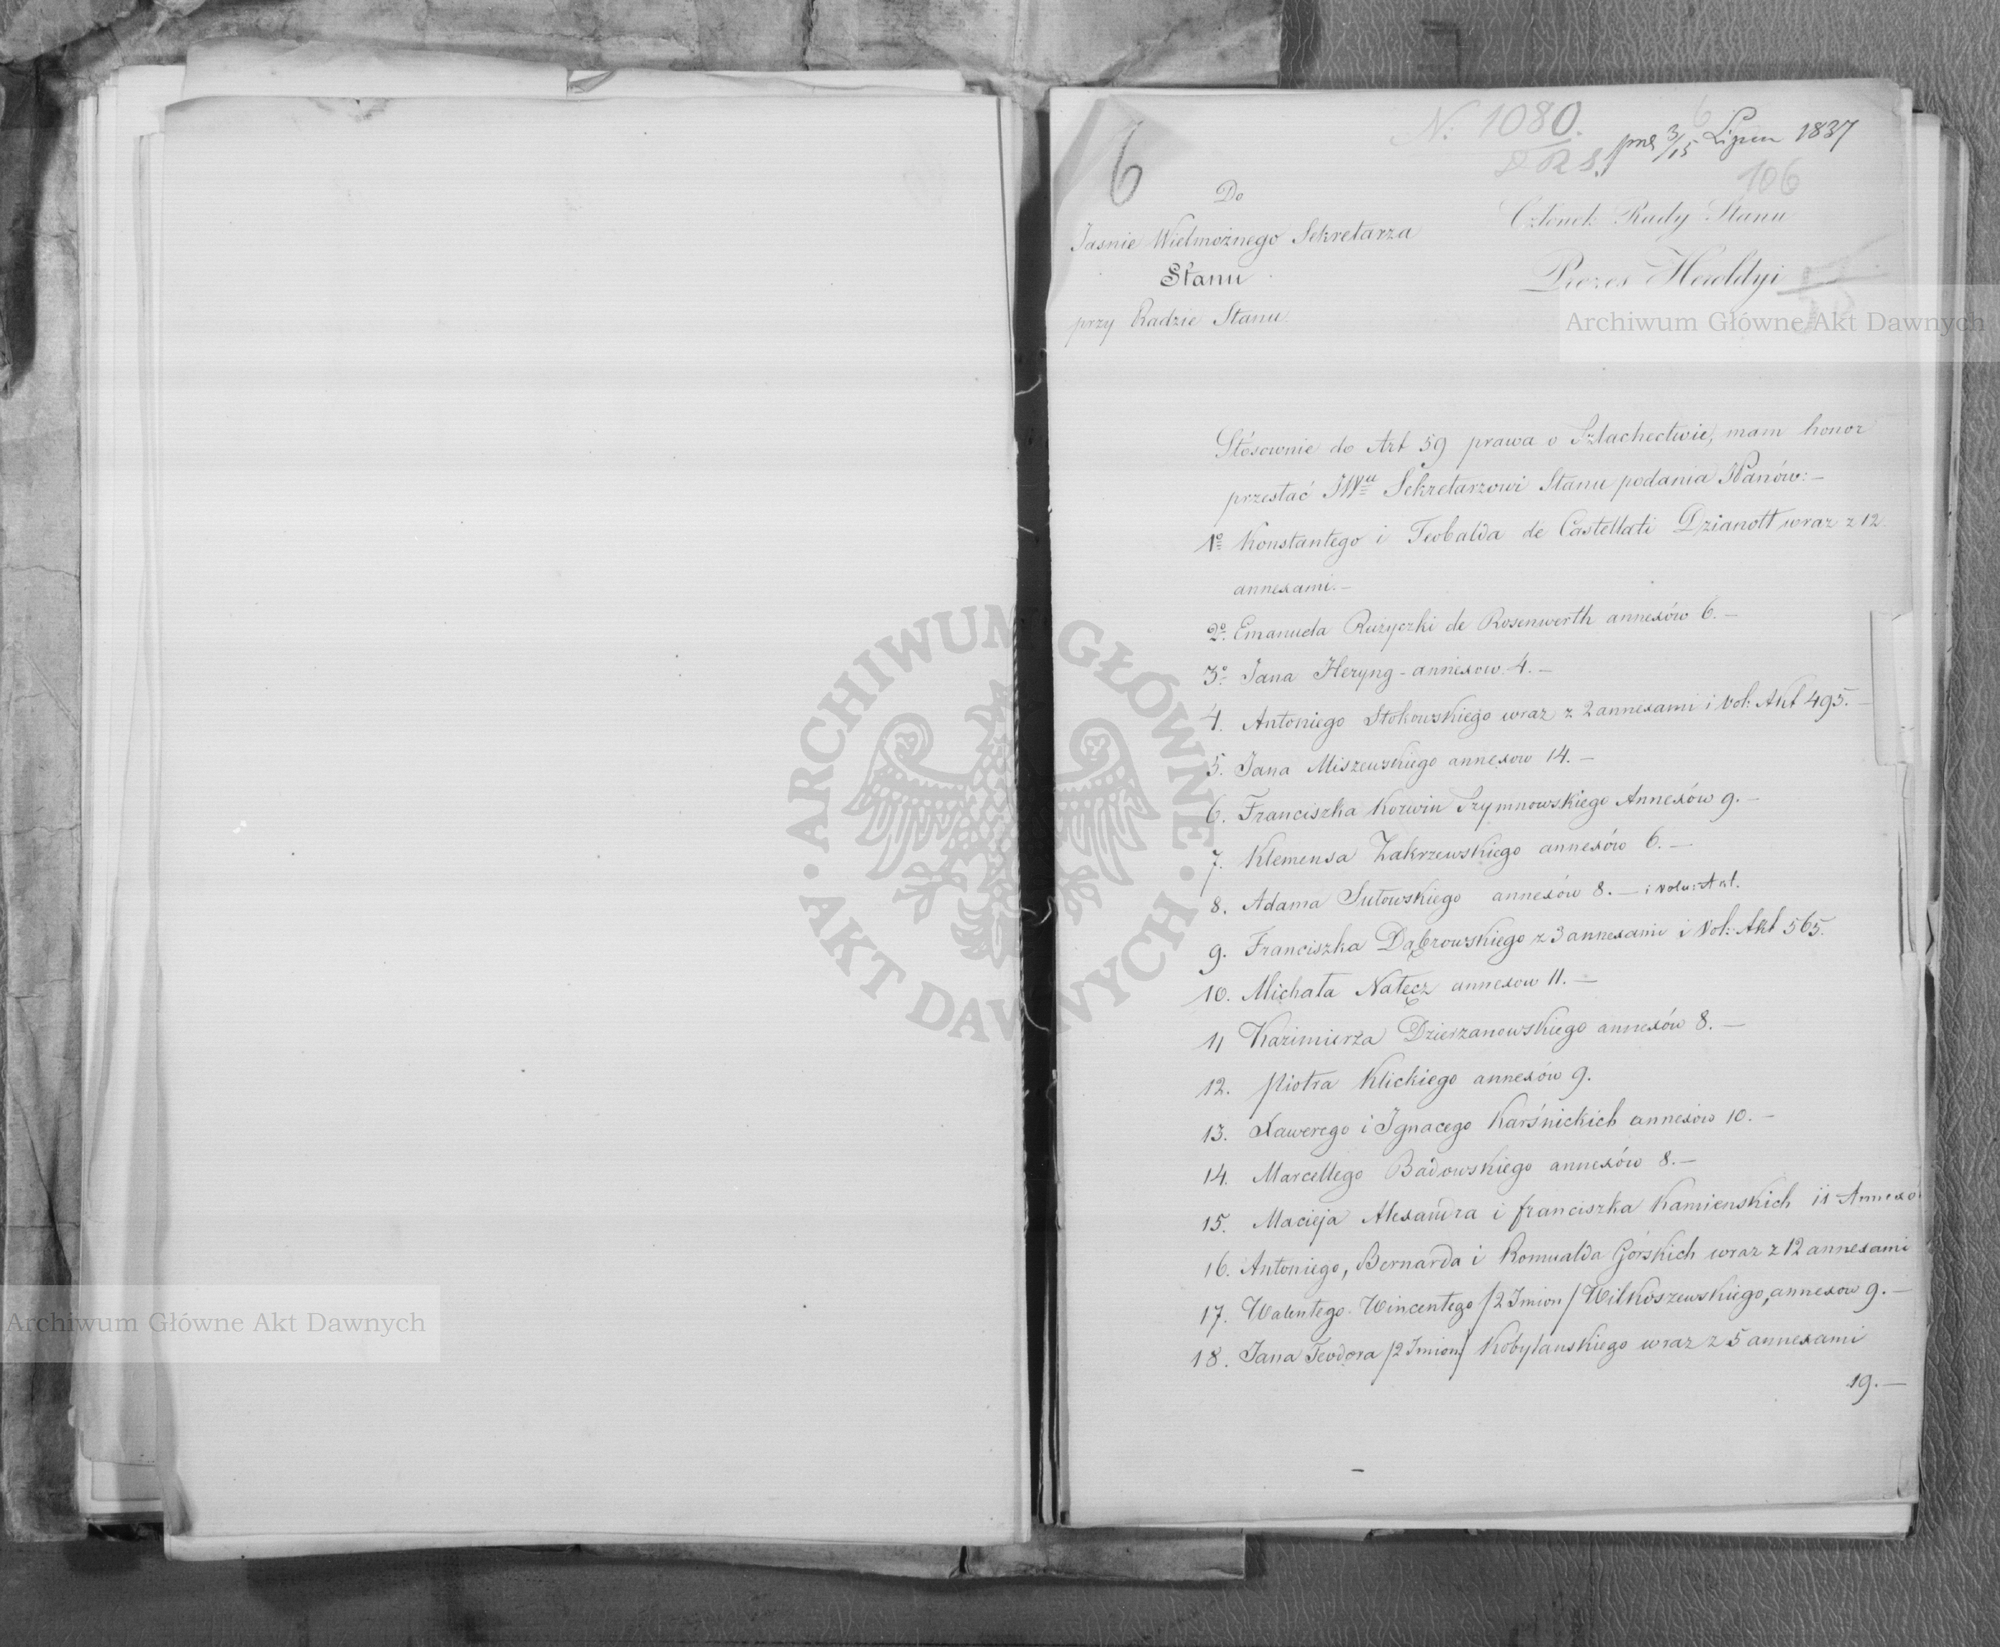 6
N: 1080.
6
pns 3/15 Lipca 1837
106
Do
Jasnie Wielmożnego Sekretarza
Stanu
przy Radzie Stanu
Członek Rady Stanu
Prezes Heroldyi
Stósownie do Art 59 prawa o Szlachectwie, mam honor
przesłać JWu Sekretarzowi Stanu podania Panów:–
1o Konstantego i Teobalda de Castellati Dzianott wraz z 12
annexami.–
2o Emanuela Ruzyczki de Rosenwerth annexów 6.–
3o Jana Heryng – annexow 4.–
4. Antoniego Stokowskiego wraz z 2 annexami i Vol: Akt 495.–
5. Jana Miszewskiego annexow 14.–
6. Franciszka Korwin Szymnowskiego Annexów 9.–
7. Klemensa Zakrzewskiego annexów 6.–
8. Adama Sutowskiego annexów 8.– i Volu: Akt.
9. Franciszka Dąbrowskiego z 3 annexami i Vol: Akt 565.
10. Michała Nałęcz annexow 11.–
11 Kazimierza Dzierzanowskiego annexów 8.–
12. Piotra Klickiego annexów 9.
13. Xawerego i Ignacego Karśnickich annexów 10.–
14. Marcellego Badowskiego annexów 8.–
15. Macieja Alexandra i franciszka Kamienskich 11 Annexó
16. Antoniego, Bernarda i Romualda Górskich wraz z 12 annexami
17. Walentego Wincentego /2 Imion/ Wilkoszewskiego, annexow 9.–
18. Jana Teodora /2 Imion/ Kobylanskiego wraz z 5 annexami
19.–
Archiwum Główne Akt Dawnych
ARCHIWUM GŁÓWNE · AKT DAWNYCH ·
Archiwum Główne Akt Dawnych